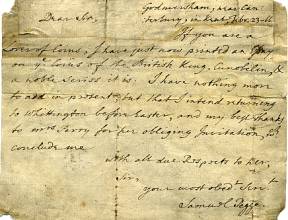 Godmersham, near Can
terbury, in Kent, Febr. 23
Dear Sir,
If you are a
lover of Coins, I have just now printed an Essay
on yᵉ Coins of the British King, Cunobelin, &
a noble Series it is: I have nothing more
to add in present, but that I intend returning
to Whittington before Easter, and my best thanks
to Mrs. for her obliging Invitation,
conclude me
with all due Respects to her,
Sir,
your most obedᵗ Servᵗ
Samuel Pegge